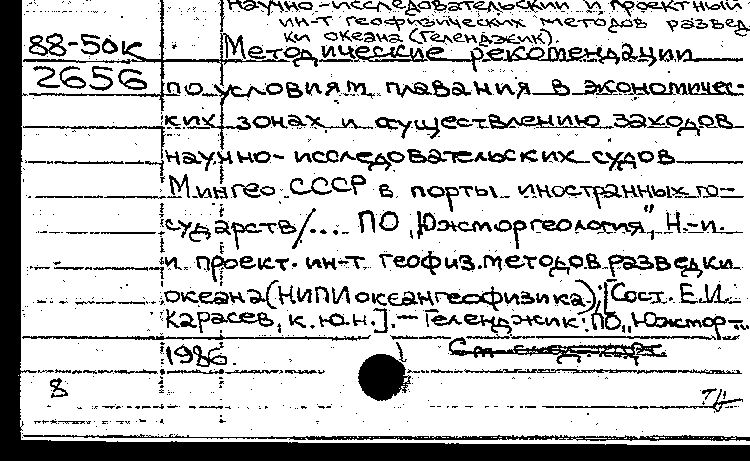 Научно-исследовательский и проектный
ин-т геофизических методов развед
ки океана (Геленджик).
88-50к Методические рекомендации
2656 по условиям плавания в экономичес-
ких зонах и осуществлению заходов
научно-исследовательских судов
Мингео СССР в порты иностранных го-
сударств/.... ПО „Южморгеология", Н.-и.
и проект. ин-т геофиз. методов разведки
океана (НИПИокеангеофизика); [Сост. Е.И.
Карасев, к.ю.н.].— Геленджик: ПО „Южмор-...
1986.
8